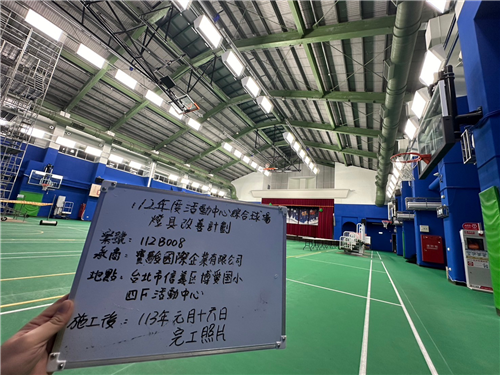 112年度活動中心綜合球場
燈具改善計劃
案號：112B008
承商：寶騐國際企業有限公司
地點：台北市信義區博愛國小
四F活動中心
施工後：113年元月十六日
完工照片